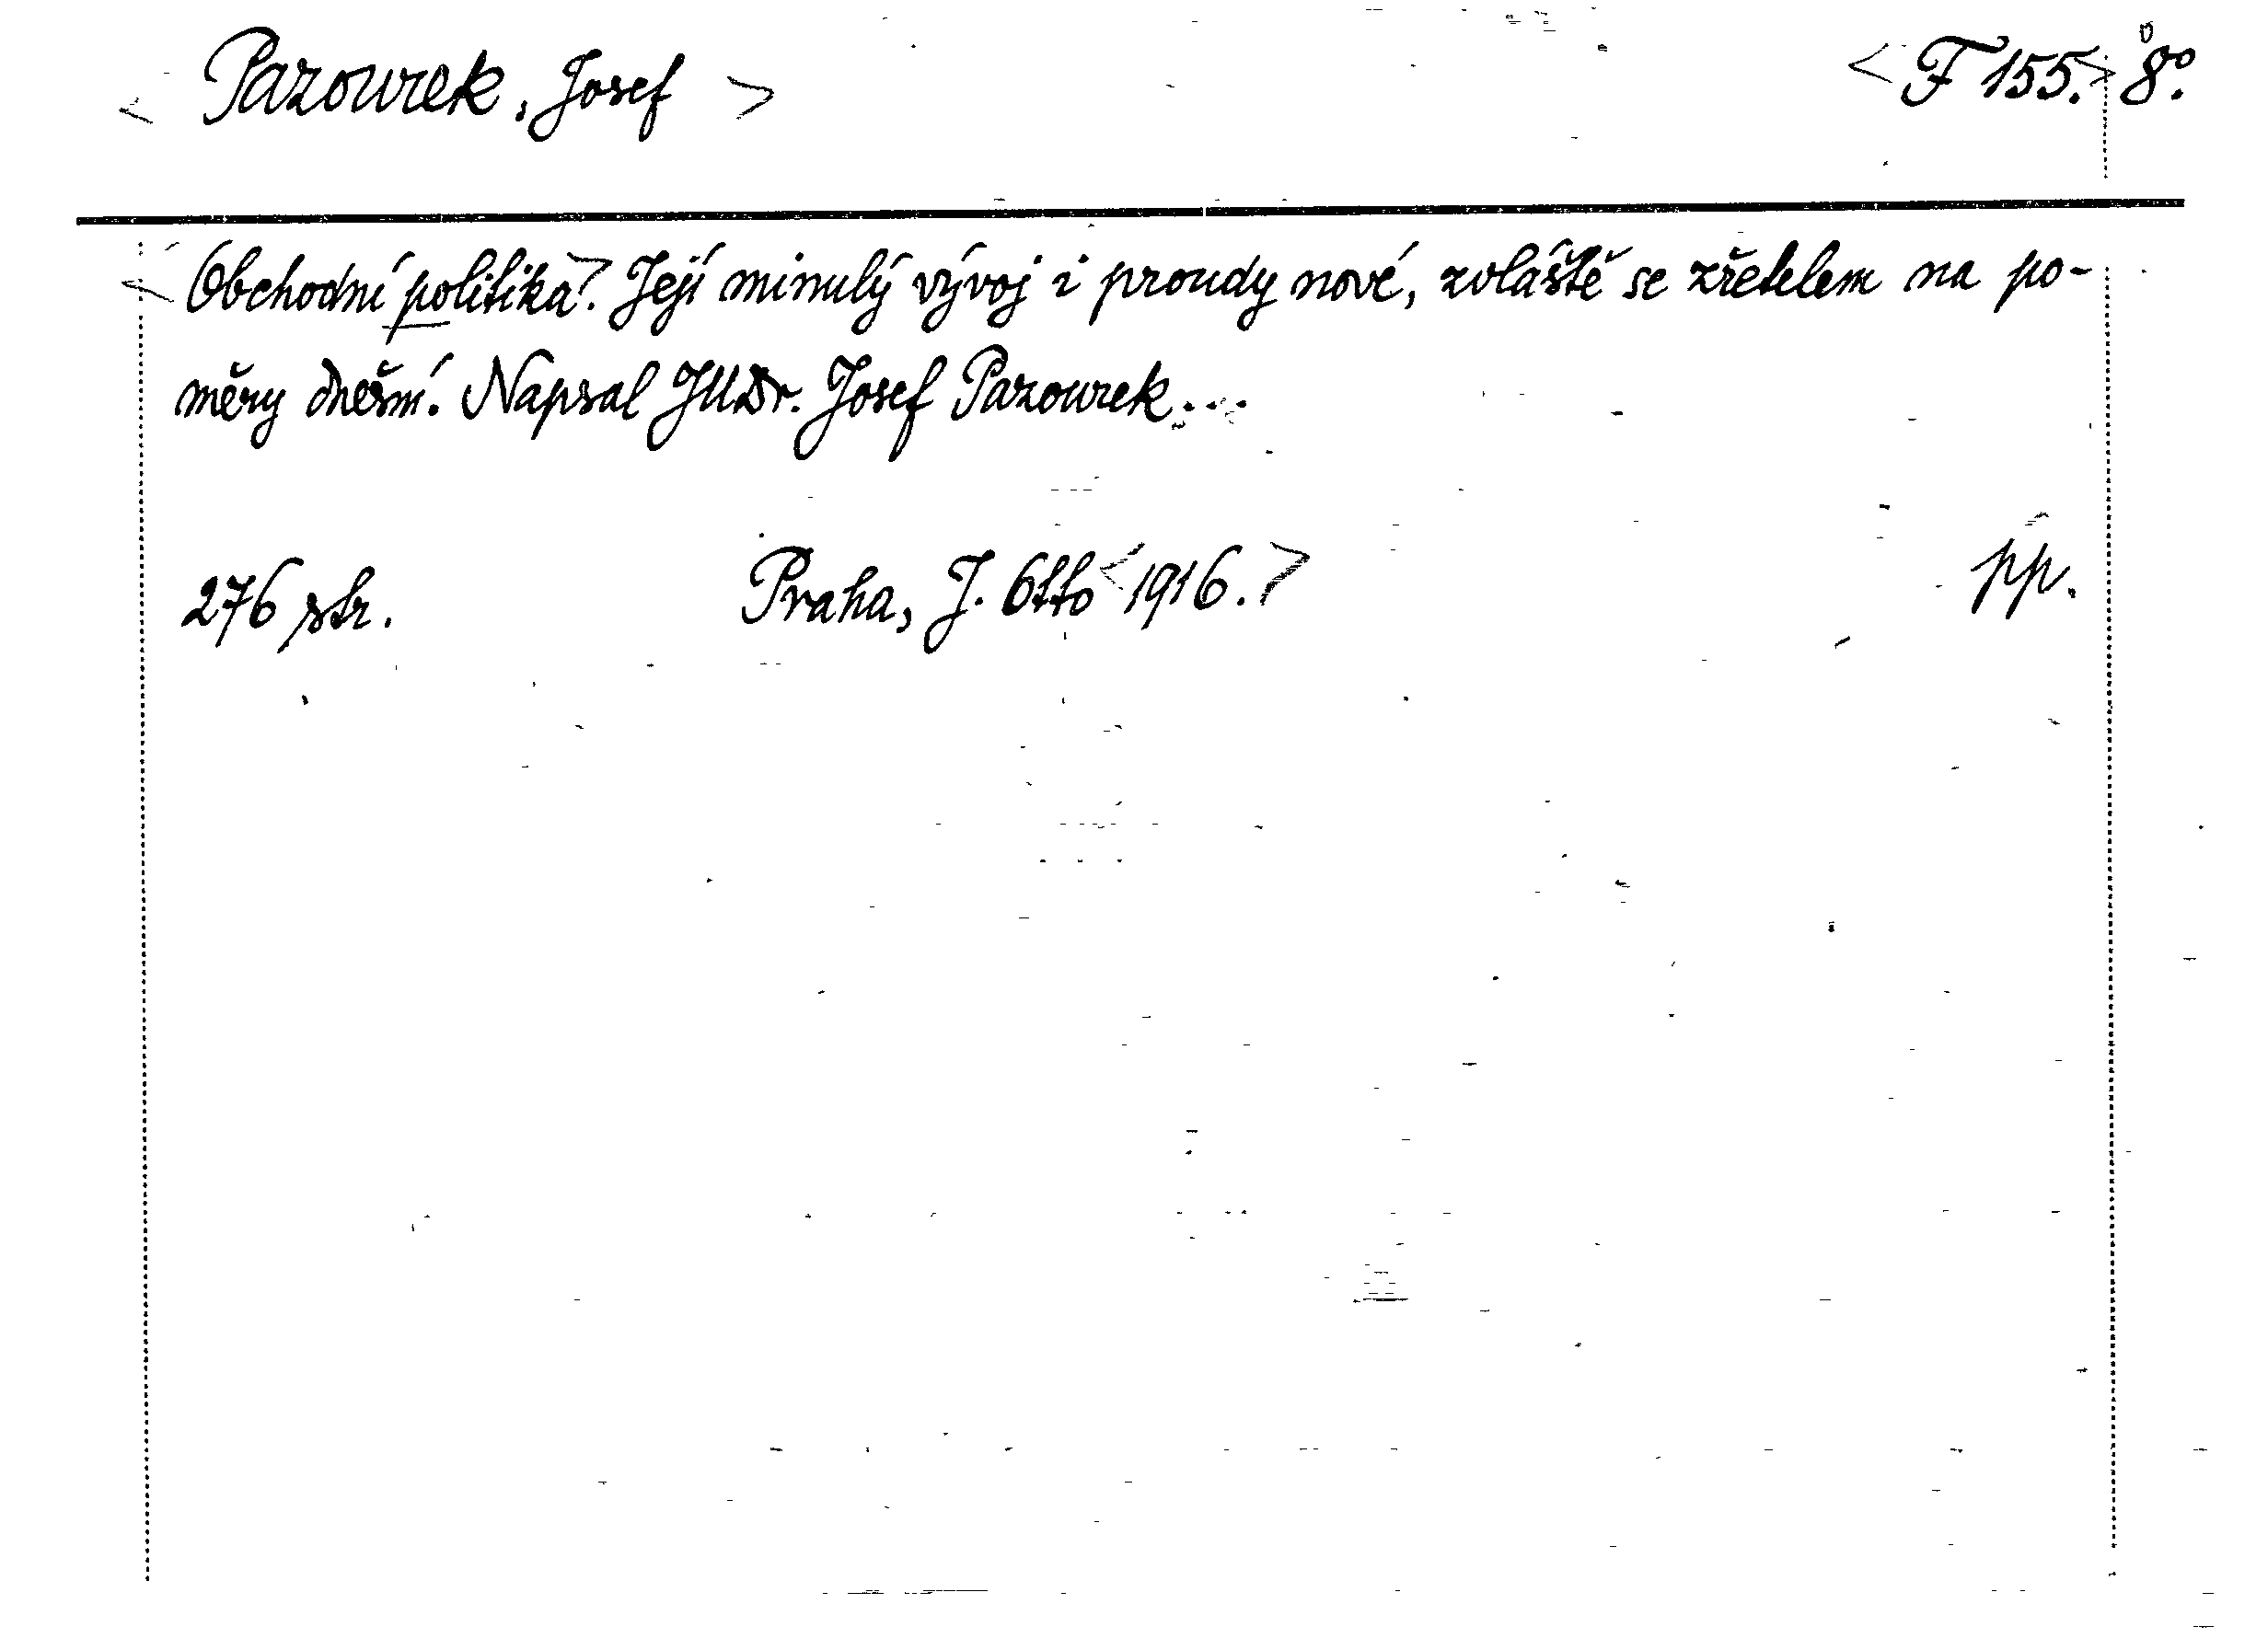 < Pazourek, Josef > < F 155. > 8°.
< Obchodní politika >. Její minulý vývoj i proudy nové, zvláště se zřetelem na po-
měry dnešní. Napsal JUDr. Josef Pazourek...
276 str. Praha, J. Otto < 1916. > pp.